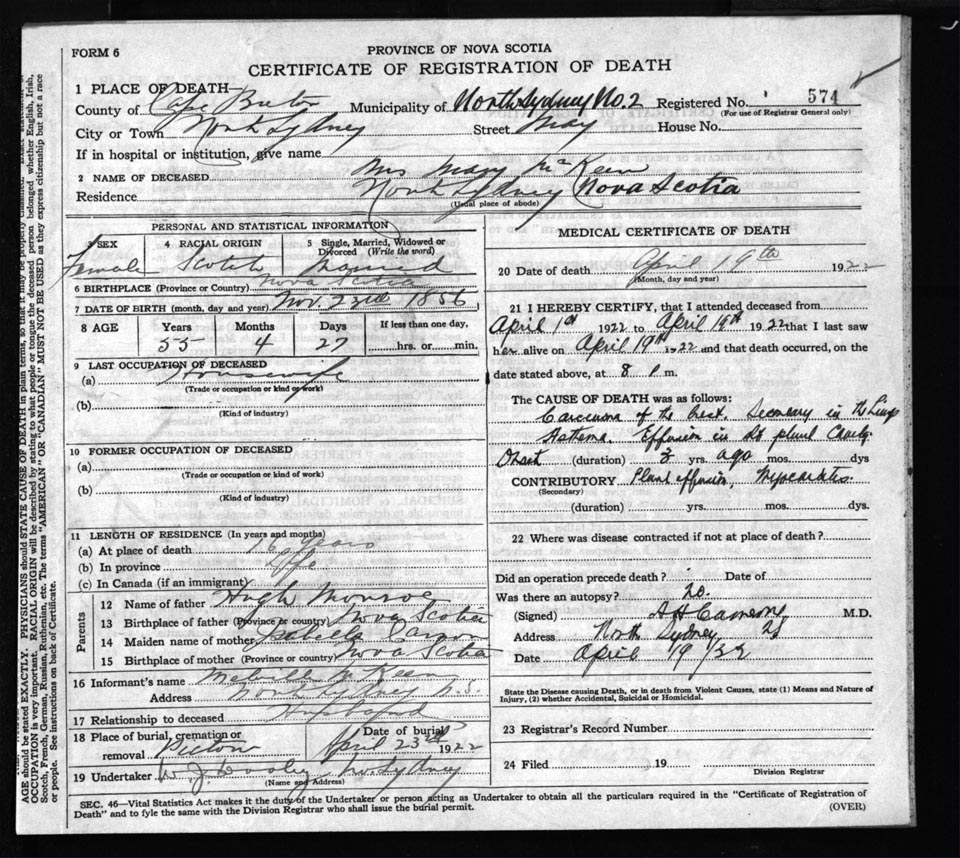 FORM 6
PROVINCE OF NOVA SCOTIA
CERTIFICATE OF REGISTRATION OF DEATH
1 PLACE OF DEATH—
County of Cape Breton Municipality of North Sydney No. 2 Registered No. 574
(For use of Registrar General only)
City or Town North Sydney Street May House No.
If in hospital or institution, give name
2 NAME OF DECEASED Mrs Mary McKeen
Residence North Sydney Nova Scotia
(Usual place of abode)
PERSONAL AND STATISTICAL INFORMATION
3 SEX 4 RACIAL ORIGIN 5 Single, Married, Widowed or Divorced (Write the word)
Female Scotch Married
6 BIRTHPLACE (Province or Country) Nova Scotia
7 DATE OF BIRTH (month, day and year) Nov. 23rd 1856
8 AGE Years Months Days If less than one day,
55 4 27 hrs. or min.
9 LAST OCCUPATION OF DECEASED
(a) Housewife
(Trade or occupation or kind of work)
(b)
(Kind of industry)
10 FORMER OCCUPATION OF DECEASED
(a)
(Trade or occupation or kind of work)
(b)
(Kind of industry)
11 LENGTH OF RESIDENCE (In years and months)
(a) At place of death 16 years
(b) In province Life
(c) In Canada (if an immigrant)
Parents
12 Name of father Hugh Monroe
13 Birthplace of father (Province or country) Nova Scotia
14 Maiden name of mother Isabella
15 Birthplace of mother (Province or country) Nova Scotia
16 Informant's name Melville McKeen
Address North Sydney N.S.
17 Relationship to deceased Husband
18 Place of burial, cremation or removal Pictou Date of burial April 23rd 1922
19 Undertaker W. J. Dooley N. Sydney
(Name and Address)
MEDICAL CERTIFICATE OF DEATH
20 Date of death April 19th 1922
(Month, day and year)
21 I HEREBY CERTIFY, that I attended deceased from
April 1st 1922 to April 19th 1922 that I last saw
her alive on April 19th 1922 and that death occurred, on the
date stated above, at 8 P. m.
The CAUSE OF DEATH was as follows:
Carcinoma of the breast. Secondary in the Lung
Asthma. Effusion in Rt plural Cavity.
Onset (duration) 3 yrs. ago mos. dys
CONTRIBUTORY Plural effusion, Myocarditis.
(Secondary)
(duration) yrs. mos. dys.
22 Where was disease contracted if not at place of death?
Did an operation precede death? Date of
Was there an autopsy? no.
(Signed) A H Cameron, M.D.
Address North Sydney
Date April 19/22
State the Disease causing Death, or in death from Violent Causes, state (1) Means and Nature of
Injury, (2) whether Accidental, Suicidal or Homicidal.
23 Registrar's Record Number
24 Filed 19
Division Registrar
SEC. 46—Vital Statistics Act makes it the duty of the Undertaker or person acting as Undertaker to obtain all the particulars required in the "Certificate of Registration of
Death" and to fyle the same with the Division Registrar who shall issue the burial permit.
(OVER)
AGE should be stated EXACTLY. PHYSICIANS should STATE CAUSE OF DEATH in plain terms, so that it may be properly classified.
OCCUPATION is very important. RACIAL ORIGIN will be described by stating to what people or tongue the deceased person belonged whether English, Irish,
Scotch, French, German, Russian, Ruthenian, etc. The terms "AMERICAN" OR "CANADIAN" MUST NOT BE USED as they express citizenship but not a race
or people. See instructions on back of Certificate.